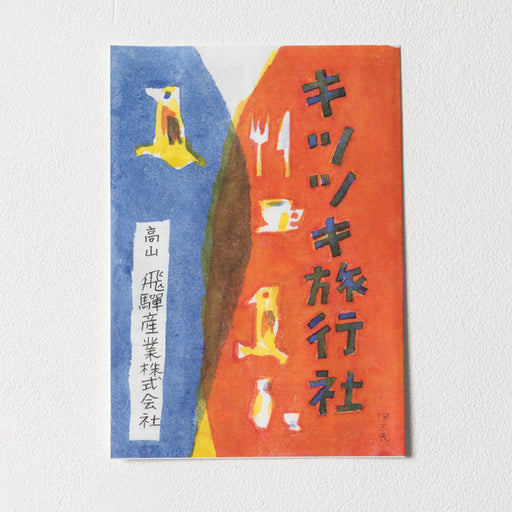 キツツキ旅行社
高山 飛驒産業株式会社